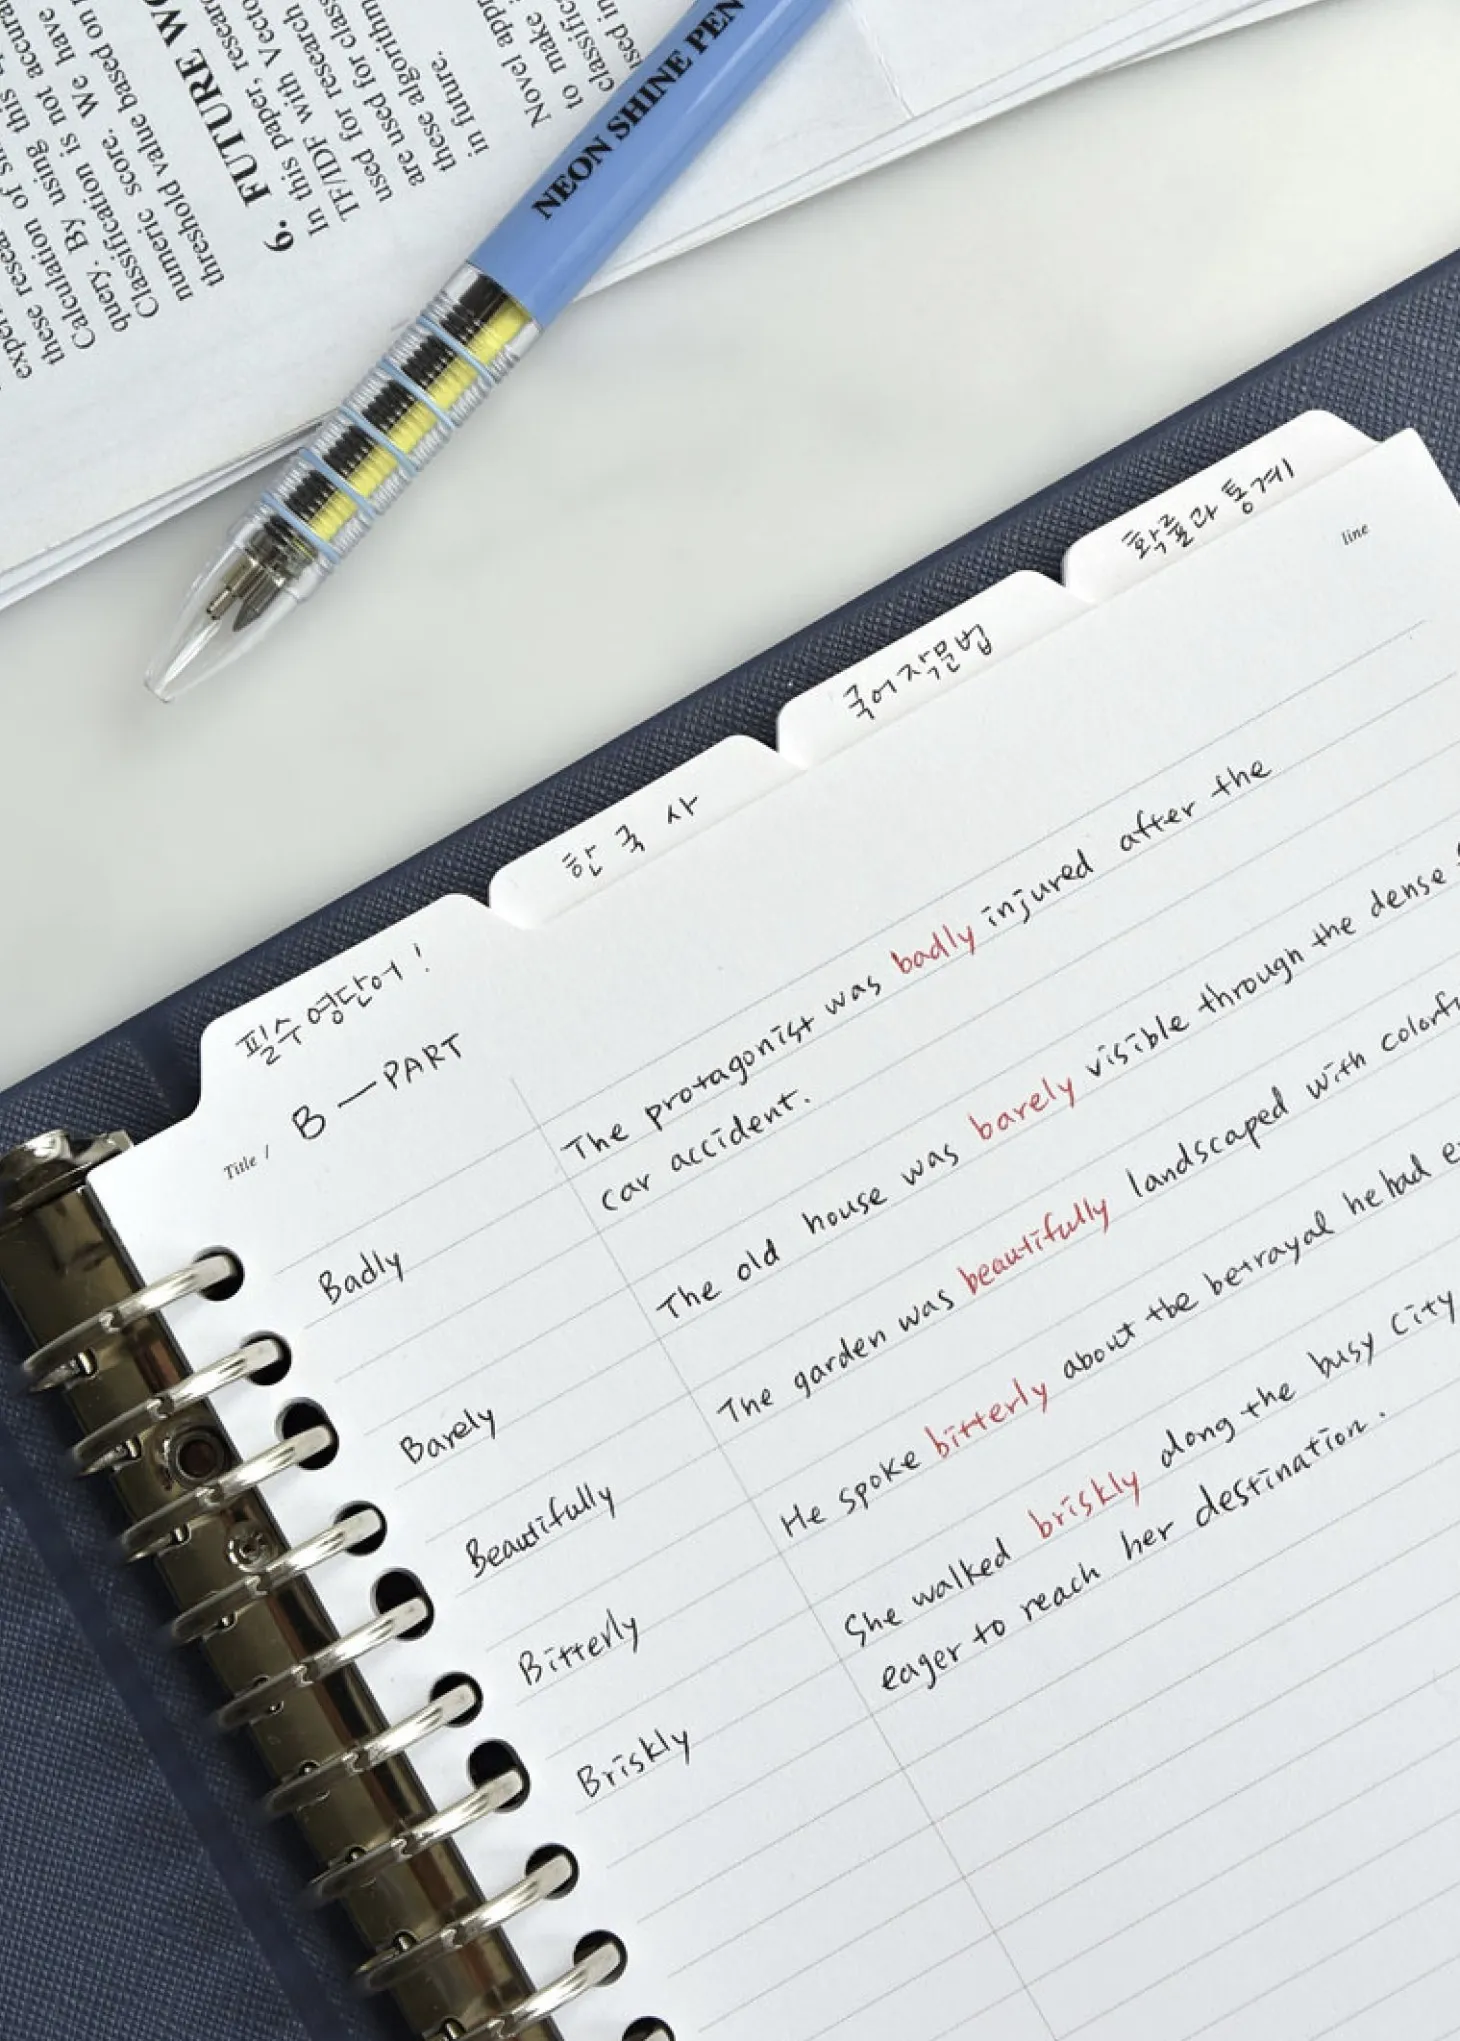 exper
these resear
Calculation of si
query. By using this
Classification is not accura
numeric score. We have
threshold value based on
6. FUTURE WO
In this paper, resear
TF/IDF with Vecto
used for research
are used for class
these algorithm
in future.
Novel app
to make
classific
used in
NEON SHINE PEN
확률과 통계
국어작문법
한국사
필수영단어!
line
Title / B — PART
Badly
The protagonist was badly injured after the
car accident.
Barely
The old house was barely visible through the dense
Beautifully
The garden was beautifully landscaped with colorfu
Bitterly
He spoke bitterly about the betrayal he had e
Briskly
She walked briskly along the busy city
eager to reach her destination.